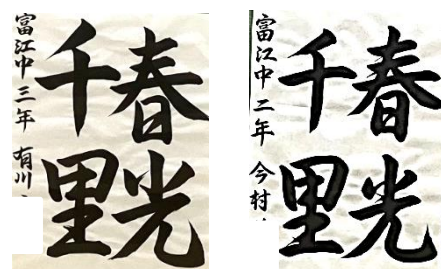 春光
千里
富江中三年 有川
春光
千里
富江中二年 今村